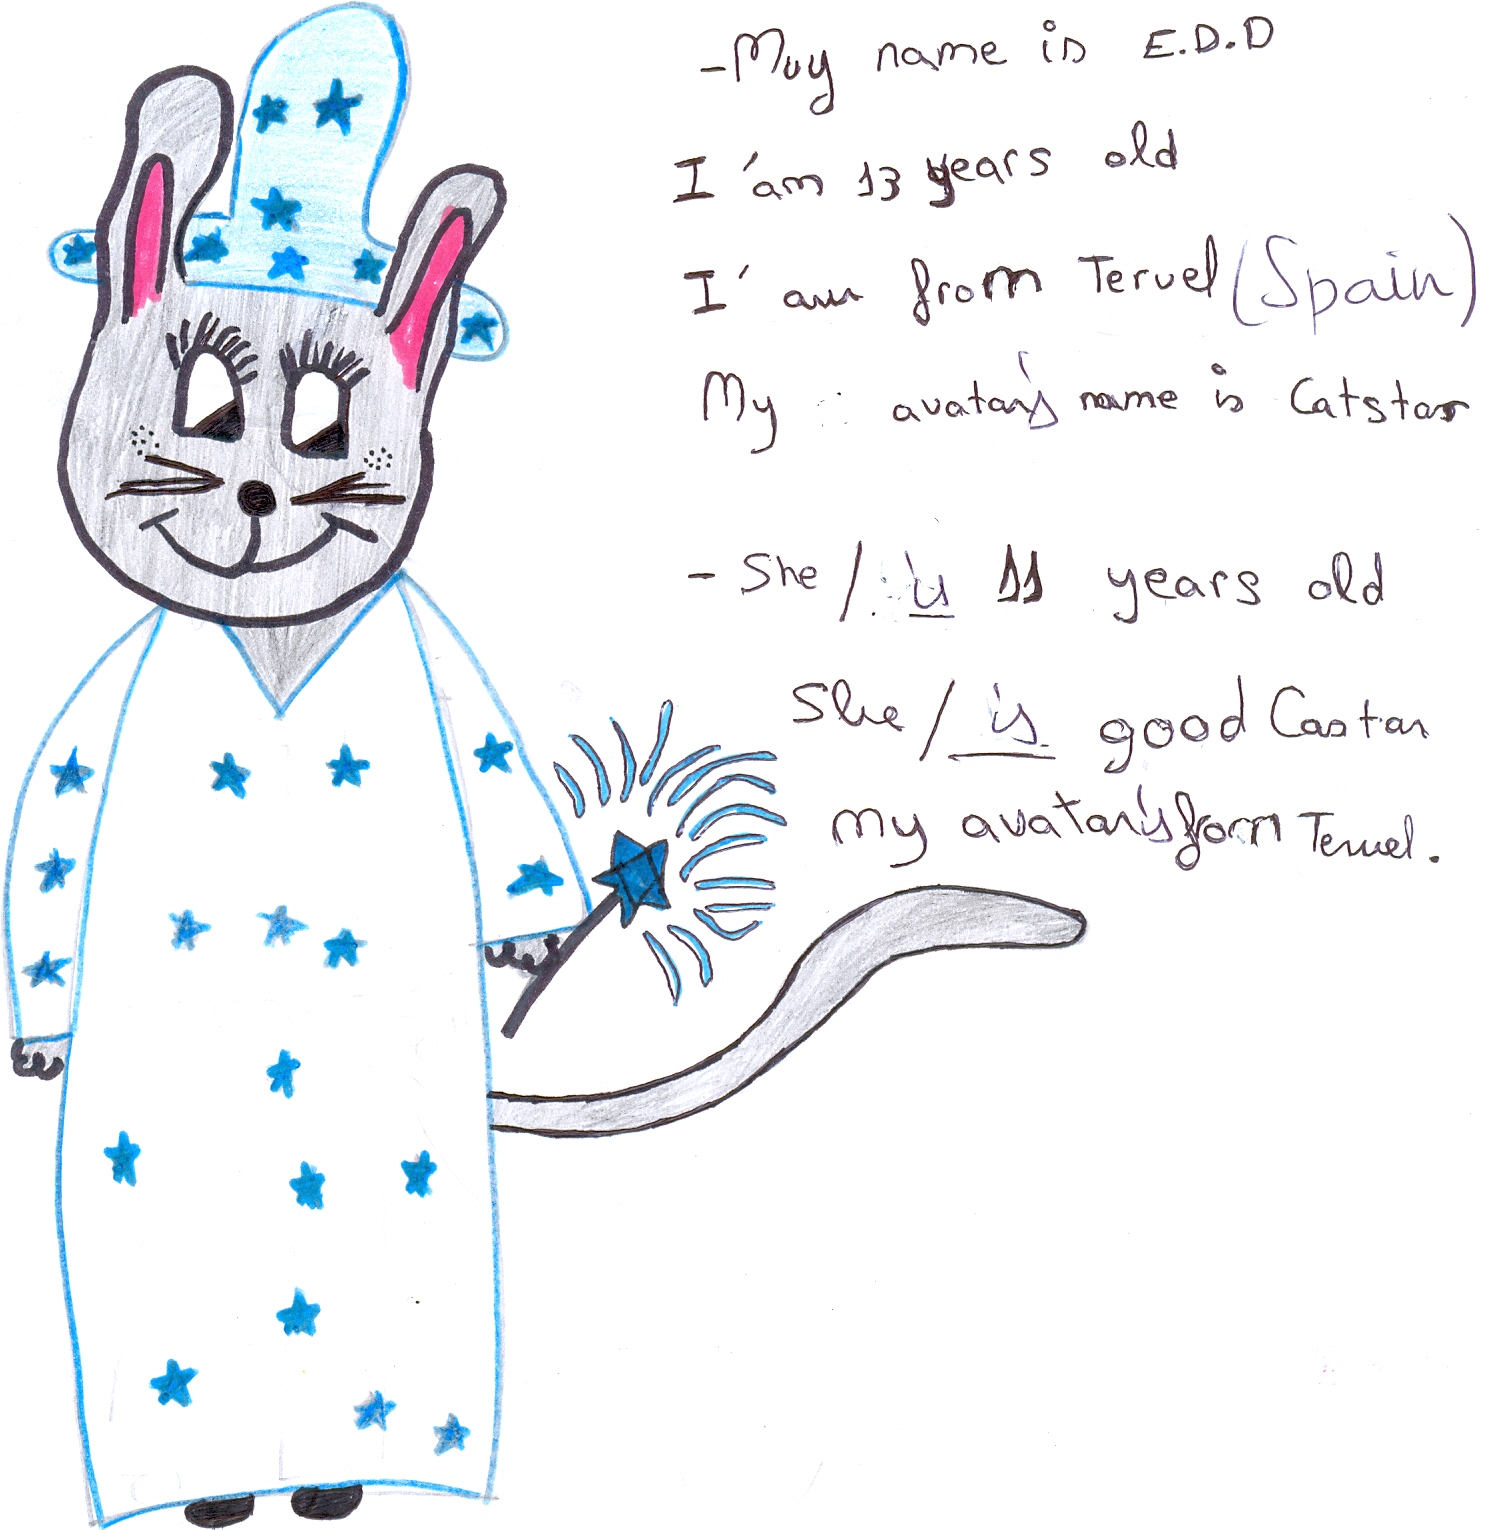 -Muy name is E.D.D
I 'am 13 years old
I' am from Teruel (Spain)
My avatar's name is Catstar
- She / is 11 years old
She / is good Castar
my avatar's form Teruel.